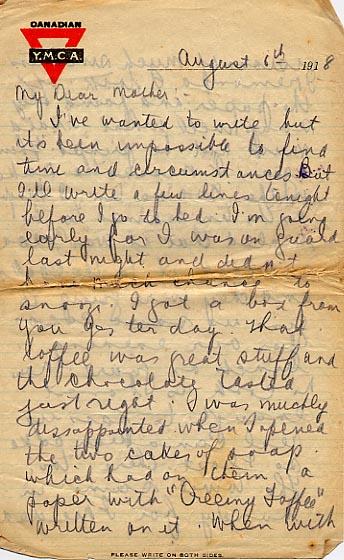 CANADIAN
Y.M.C.A.
August 6th 1918
My Dear Mother:-
I've wanted to write but
its been impossible to find
time and circumstances. But
I'll write a few lines tonight
before I go to bed. I'm going
early for I was on guard
last night and didn't
have much chance to
snooze. I got a box from
you yesterday. That
coffee was great stuff and
the chocolate tasted
just right. I was muchly
dissappointed when I opened
the two cakes of soap
which had on them a
paper with "Creemy Toffee"
written on it. When with
PLEASE WRITE ON BOTH SIDES